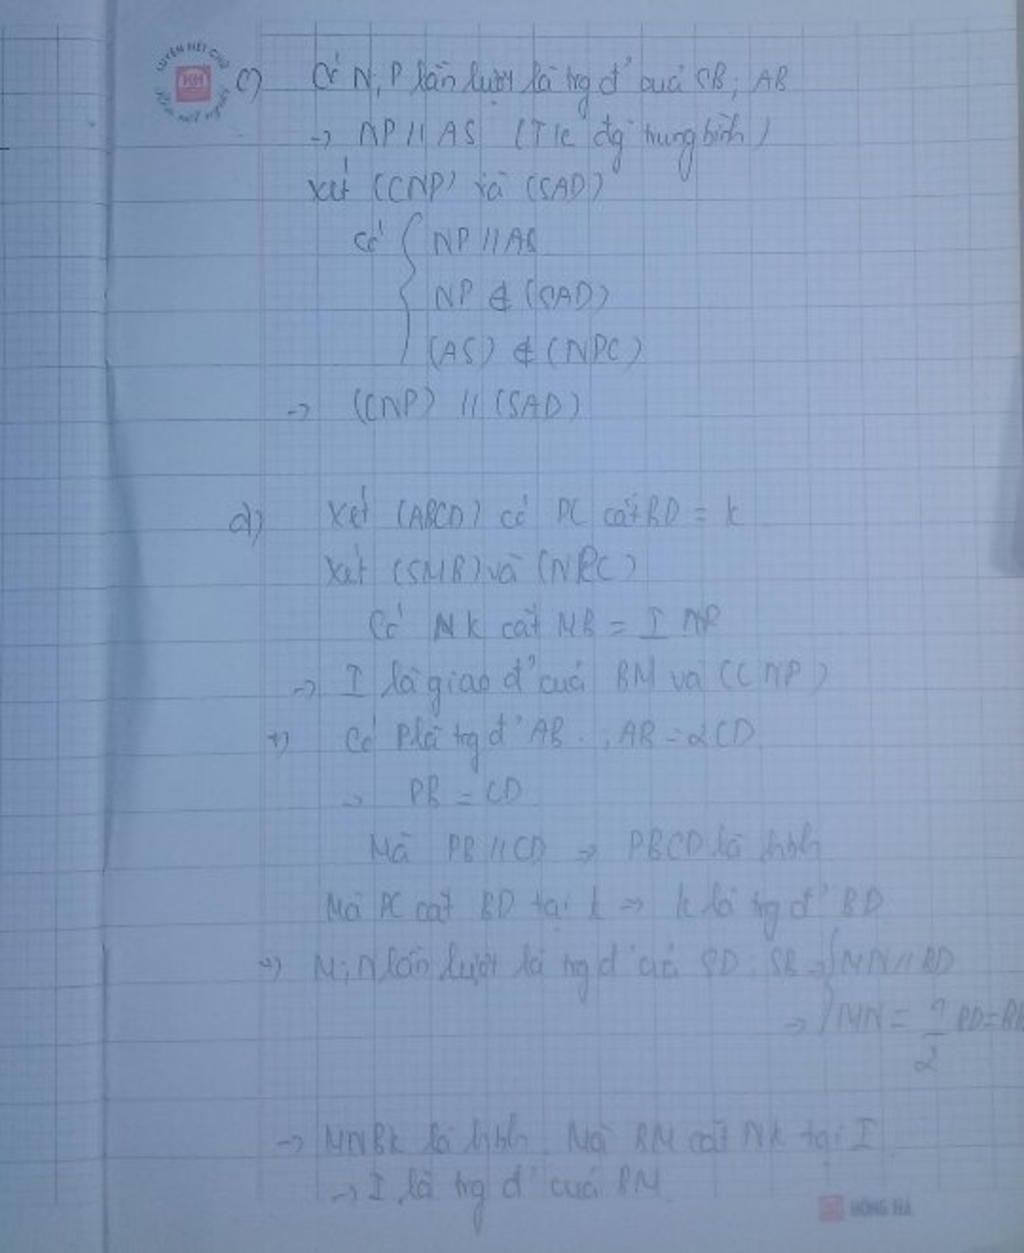 LUYỆN NÉT CHỮ
KH
RÈN NẾT NGƯỜI
c) Có N, P lần lượt là trg đ' của SB; AB
→ NP // AS (T/c đg trung bình)
Xét (CNP) và (SAD)
Có { NP // AS
NP ⊄ (SAD)
(AS) ⊄ (NPC)
→ (CNP) // (SAD)
d) Xét (ABCD) có PC cắt BD = k
Xét (SMB) và (NPC)
Có Nk cắt MB = I
→ I là giao đ' của BM và (CNP)
+) Có P là trg đ' AB, AB = 2CD
→ PB = CD
Mà PB // CD → PBCD là hbh
Mà PC cắt BD tại k → k là trg đ' BD
→) M; N lần lượt là trg đ' của SD; SB → { MN // BD
→ { MN = 1/2 BD = Bk
→ MNBk là hbh. Mà BM cắt Nk tại I
→ I là trg đ' của BM
HỒNG HÀ